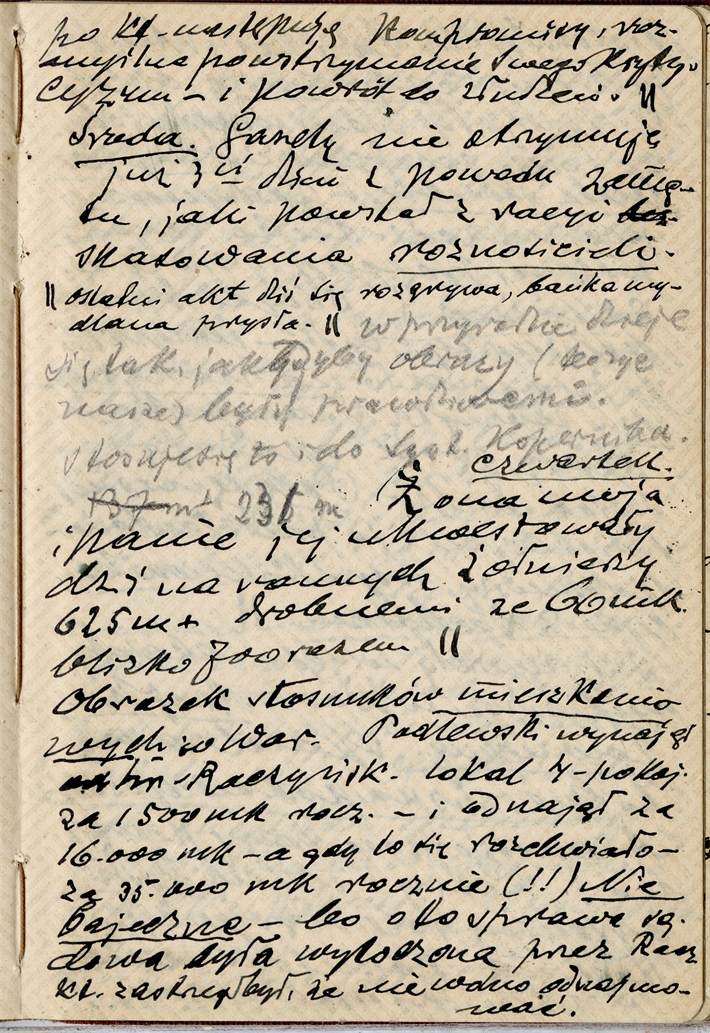 po kt. następują kompromisy, roz-
myślne powstrzymanie swego kryty-
cyzmu – i powrót do złudzeń. ||
Środa. Gazety nie otrzymuję
już 3ci dzień z powodu zamę-
tu, jaki powstał z racyi
skasowania roznosicieli.
|| Ostatni akt dziś się rozgrywa, bańka my-
dlana prysła. || w przyrodzie dzieje
się tak, jak gdyby obrazy (teorye
nasze) były prawdziwemi.
Stosuje się to i do syst. Kopernika.
Czwartek.
231 m Żona moja
i panie jej
dziś na rannych żołnierzy
625 m + drobnemi ze 60 mk
blizko 700 razem ||
Obrazek stosunków mieszkanio
wych w War. Podlewski wynajął
Raczyńsk. lokal 7-pokoj.
za 1500 mk rocz. – i odnajął za
16.000 mk – a gdy to się rozchwiało –
za 35.000 mk rocznie (!!) Nie
bajeczne – bo oto sprawa są-
dowa była wytoczona przez Racz
kt. zastrzegł był, że nie wolno odnajmo-
wać.